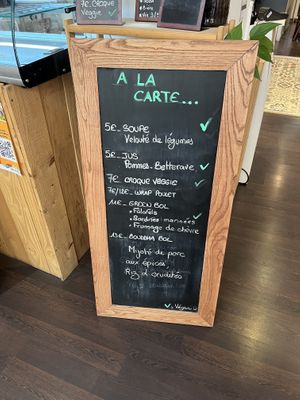 7€ CROQUE
Veggie
A LA
CARTE...
5€_ SOUPE
Velouté de légumes
5€_ JUS
Pommes - Betterave
7€ CROQUE VEGGIE
7€/12€_ WRAP POULET
11€_ GREEN BOL
• Falafels
• Sardines marinées
• Fromage de chèvre
13€_ BOUDDHA BOL
Mijoté de porc
aux épices
Riz & crudités